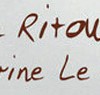 Ritou
rine Le